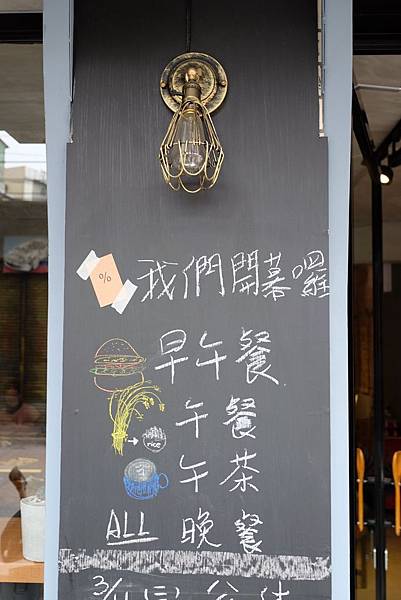 %
我們開幕囉
早午餐
午餐
rice
午茶
ALL 晚餐
3/11 (三) 公休